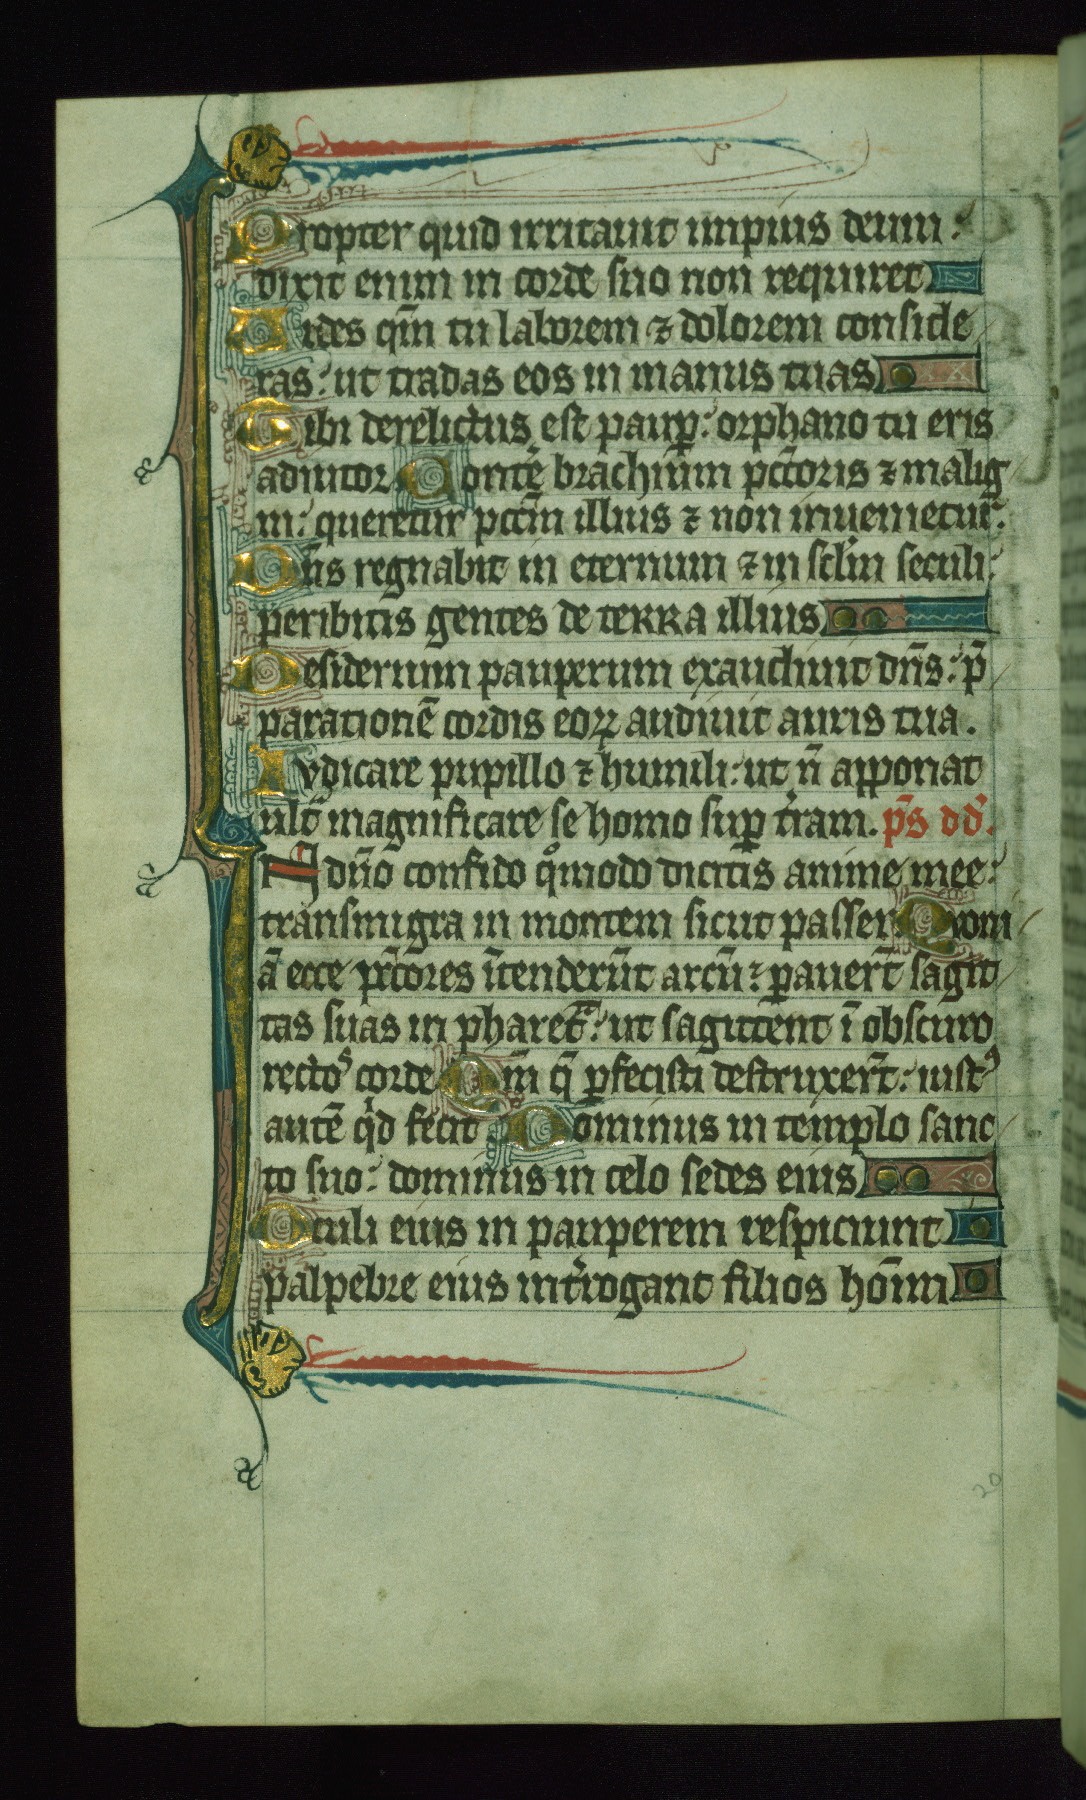 Propter quid irritauit impius deum :
dixit enim in corde suo non requiret
Uides qm̄ tu laborem ⁊ dolorem conside
ras : ut tradas eos in manus tuas
Tibi derelictus est paup̱ : orphano tu eris
adiutor Cont̄e brachium pctōris ⁊ malig
ni : queretur pctm̄ illius ⁊ non inuenietur .
Dn̄s regnabit in eternum ⁊ in sclm̄ seculi :
peribitis gentes de terra illius
Desiderium pauperum exaudiuit dn̄s : p̄
parationē cordis eoꝝ audiuit auris tua .
Iudicare pupillo ⁊ humili : ut n̄ apponat
ult̄ magnificare se homo sup̱ tr̄am . ps̄ dd̄ .
IN dn̄o confido qͦmodo dicitis anime mee :
transmigra in montem sicut passer Quoni
ā ecce pctōres ītenderūt arcū : ꝑauert̄ sagit
tas suas in pharet̄ᵃ : ut sagittent ī obscuro
rectoˢ corde Qm̄ q̄ ꝑfecisti destruxert̄ : iustꝰ
autē qͥd fecit Dominus in templo sanc
to suo : dominus in celo sedes eius
Oculi eius in pauperem respiciunt
palpebre eius int̄rogant filios hoīm
20